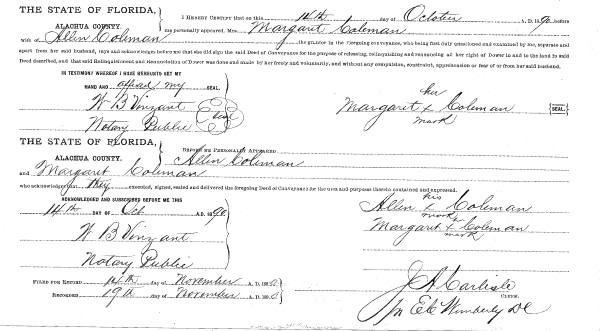 THE STATE OF FLORIDA,
ALACHUA COUNTY.
I HEREBY CERTIFY that on this 14th day of October A. D. 1890, before
me personally appeared, Mrs. Margaret Coleman
wife of Allen Coleman the grantor in the foregoing conveyance, who being first duly questioned and examined by me, separate and
apart from her said husband, says and acknowledges before me that she did sign the said Deed of Conveyance for the purpose of releasing, relinquishing and renouncing all her right of Dower in and to the land in said
Deed described, and that said Relinquishment and Renunciation of Dower all made by her freely and voluntarily, and without any compulsion, constraint, apprehension or fear of or from her said husband.
IN TESTIMONY WHEREOF I HAVE HEREUNTO SET MY
HAND AND affixed my SEAL.
W B Vinzant
Notary Public
Seal
her
Margaret x Coleman
mark
SEAL.
THE STATE OF FLORIDA,
ALACHUA COUNTY.
BEFORE ME PERSONALLY APPEARED Allen Coleman
and Margaret Coleman
who acknowledge that they executed, signed, sealed and delivered the foregoing Deed of Conveyance for the uses and purposes therein contained and expressed.
ACKNOWLEDGED AND SUBSCRIBED BEFORE ME THIS
14th DAY OF Oct A. D. 1890
W B Vinzant
Notary Public
his
Allen x Coleman
mark her
Margaret x Coleman
mark
FILED FOR RECORD 14th day of November A. D. 1890
RECORDED 19th day of November A. D. 1890
J A Carlisle
CLERK.
Wimberly DC